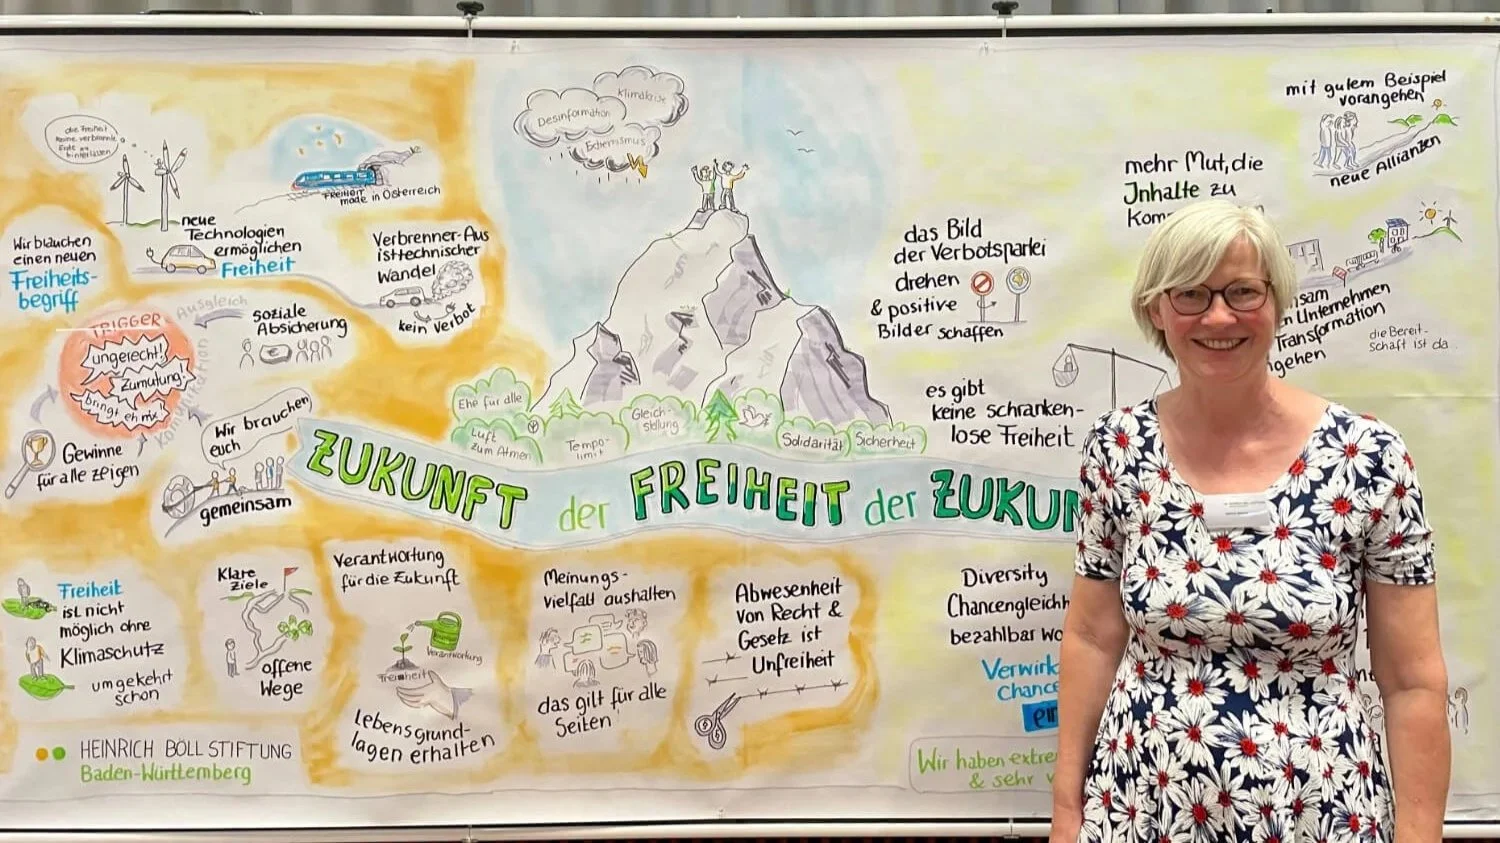 die Freiheit
keine verbrannte
Erde zu
hinterlassen
Wir brauchen
einen neuen
Freiheits-
begriff
neue
Technologien
ermöglichen
Freiheit
FREIHEIT
made in Österreich
Verbrenner-Aus
ist technischer
Wandel
kein Verbot
TRIGGER
ungerecht!
Zumutung!
bringt eh nix!
Ausgleich
Kommunikation
soziale
Absicherung
Gewinne
für alle zeigen
Wir brauchen
euch
gemeinsam
Desinformation
Klimakrise
Extremismus
Ehe für alle
Luft
zum Atmen
Tempo-
limit
Gleich-
stellung
Solidarität
Sicherheit
ZUKUNFT der FREIHEIT der ZUKUN
das Bild
der Verbotspartei
drehen
& positive
Bilder schaffen
es gibt
keine schranken-
lose Freiheit
mehr Mut, die
Inhalte zu
Kom
mit gutem Beispiel
vorangehen
neue Allianzen
sam
n Unternehmen
Transformation
gehen
die Bereit-
schaft ist da
Freiheit
ist nicht
möglich ohne
Klimaschutz
umgekehrt
schon
Klare
Ziele
offene
Wege
Verantwortung
für die Zukunft
Verantwortung
Freiheit
Lebensgrund-
lagen erhalten
Meinungs-
vielfalt aushalten
das gilt für alle
Seiten
Abwesenheit
von Recht &
Gesetz ist
Unfreiheit
Diversity
Chancengleichh
bezahlbar wo
Verwirk
Chance
ein
Wir haben extre
& sehr v
HEINRICH BÖLL STIFTUNG
Baden-Württemberg